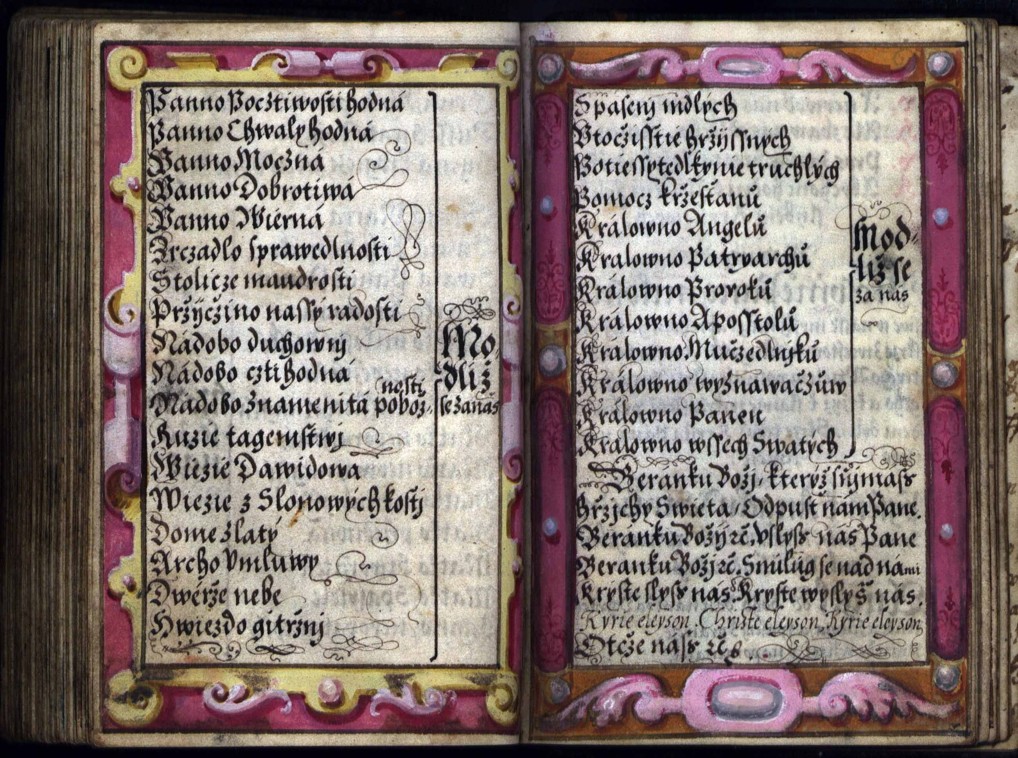 Panno Pocztiwosti hodná
Panno Chwaly hodná
Panno Moczná
Panno Dobrotiwá
Panno Wierná
Zrczadlo sprawedlnosti
Stolicze maudrosti
Pržyčzino nassý radosti
Nádobo duchownj
Nádobo czti hodná
Nádobo znamenitá pobož⸗
nosti
Ruzie tagemstwj
Wiezie Dawidowa
Wiezie z Slonowých kostj
Dome zlatý
Archo Vmluwy
Dwérže nebe
Hwiezdo gitržnj
Mo⸗
dliž
se za nás
Spasenj mdlých
Vtočzisstie hržijssnych
Potiessytedlkynie truchlých
Pomocz kržestanů
Králowno Angelů
Kralowno Patryarchů
Králowno Proroků
Králowno Aposstolů
Králowno Mučzedlnjků
Králowno wyznawačzůw
Králowno Panen
Kralowno wssech Swatých
Mod⸗
liž se
za nás
Beránku Božj, kterýž snjmáss
Hržjchy Swieta, Odpust nám Pane.
Beránku Božý ꝛč. Vslyss nás Pane
Beranku Božj ꝛč. Smilúg se nád námi
Kryste slyss nás. Kryste wyslyš nás.
Kyrie eleyson. Christe eleyson, Kyrie eleyson
Otcže náss ꝛč.